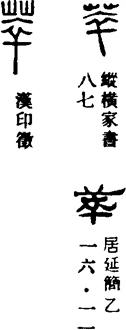 縱橫家書
八七
漢印徵
居延簡乙
一六・一一